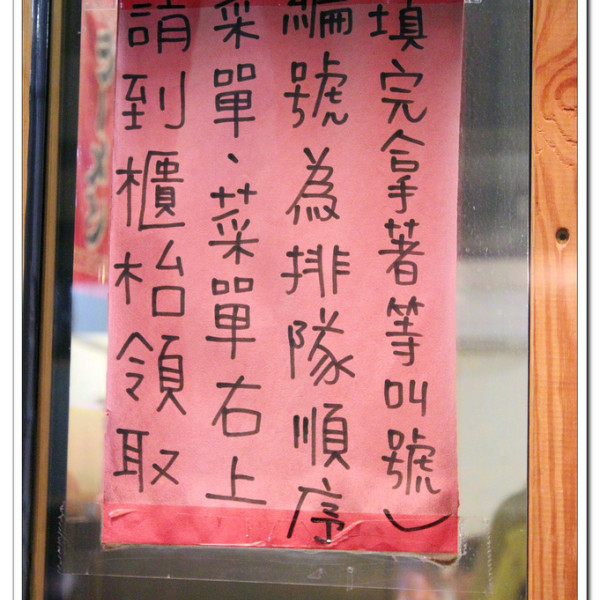 請到櫃枱領取
菜單、菜單右上
編號為排隊順序
填完拿著等叫號）
ラーメン